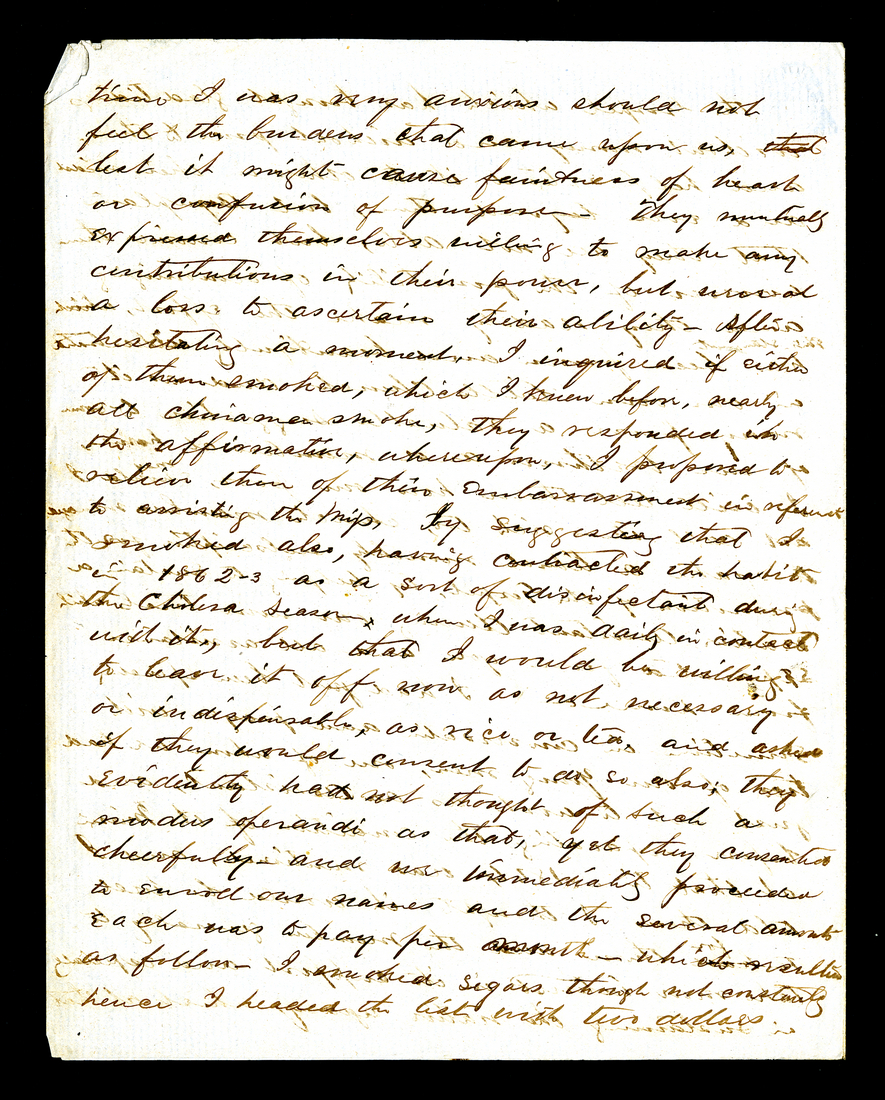 time I was very anxious should not
feel the burdens that came upon us, that
lest it might cause faintness of heart
or confusion of purpose – They mutually
expressed themselves willing to make any
contributions in their power, but were at
a loss to ascertain their ability – After
hesitating a moment, I inquired if either
of them smoked, which I knew before, nearly
all chinamen smoke, they responded in
the affirmative, whereupon, I proposed to
relieve them of their embarrassment in reference
to assisting the Miss, by suggesting that I
smoked also, having contracted the habit
in 1862-3 as a sort of disinfectant during
the Cholera season, when I was daily in contact
with it, but that I would be willing
to leave it off now as not necessary
or indispensable, as rice or tea, and asked
if they would consent to do so also; they
evidently had not thought of such a
modus operandi as that, yet they consented
cheerfully – and we immediately proceeded
to enroll our names and the several amounts
each was to pay per month – which resulted
as follow – I smoked segars though not constantly
hence I headed the list with two dollars.